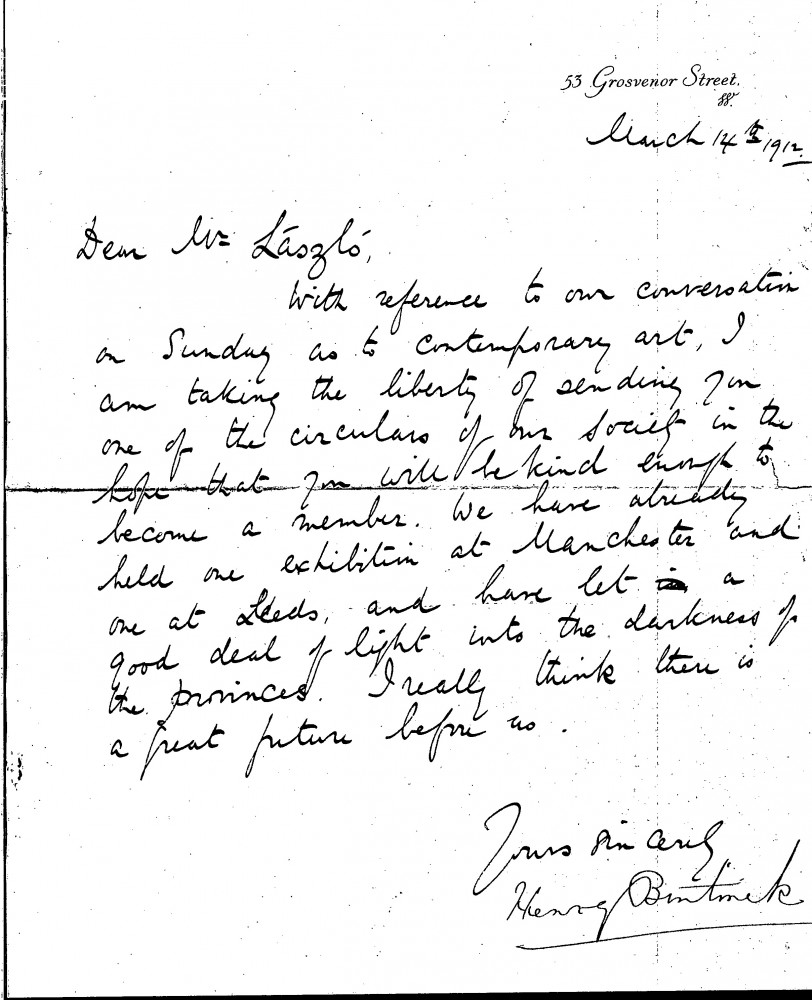 53 Grosvenor Street.
W.
March 14th 1912.
Dear Mr László,
With reference to our conversation
on Sunday as to contemporary art, I
am taking the liberty of sending you
one of the circulars of our Society in the
hope that you will be kind enough to
become a member. We have already
held one exhibition at Manchester and
one at Leeds, and have let in a
good deal of light into the darkness of
the provinces. I really think there is
a great future before us.
Yours sincerely
Henry Bentinck